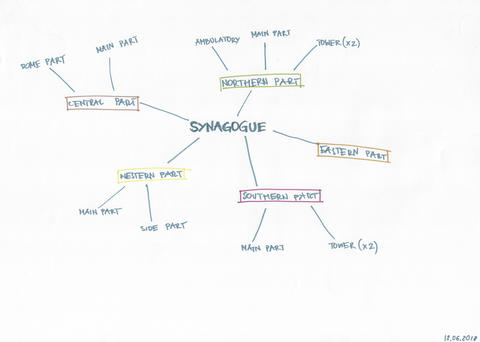 DOME PART
MAIN PART
CENTRAL PART
AMBULATORY
MAIN PART
TOWER (x2)
NORTHERN PART
SYNAGOGUE
EASTERN PART
WESTERN PART
MAIN PART
SIDE PART
SOUTHERN PART
MAIN PART
TOWER (x2)
18.06.2018